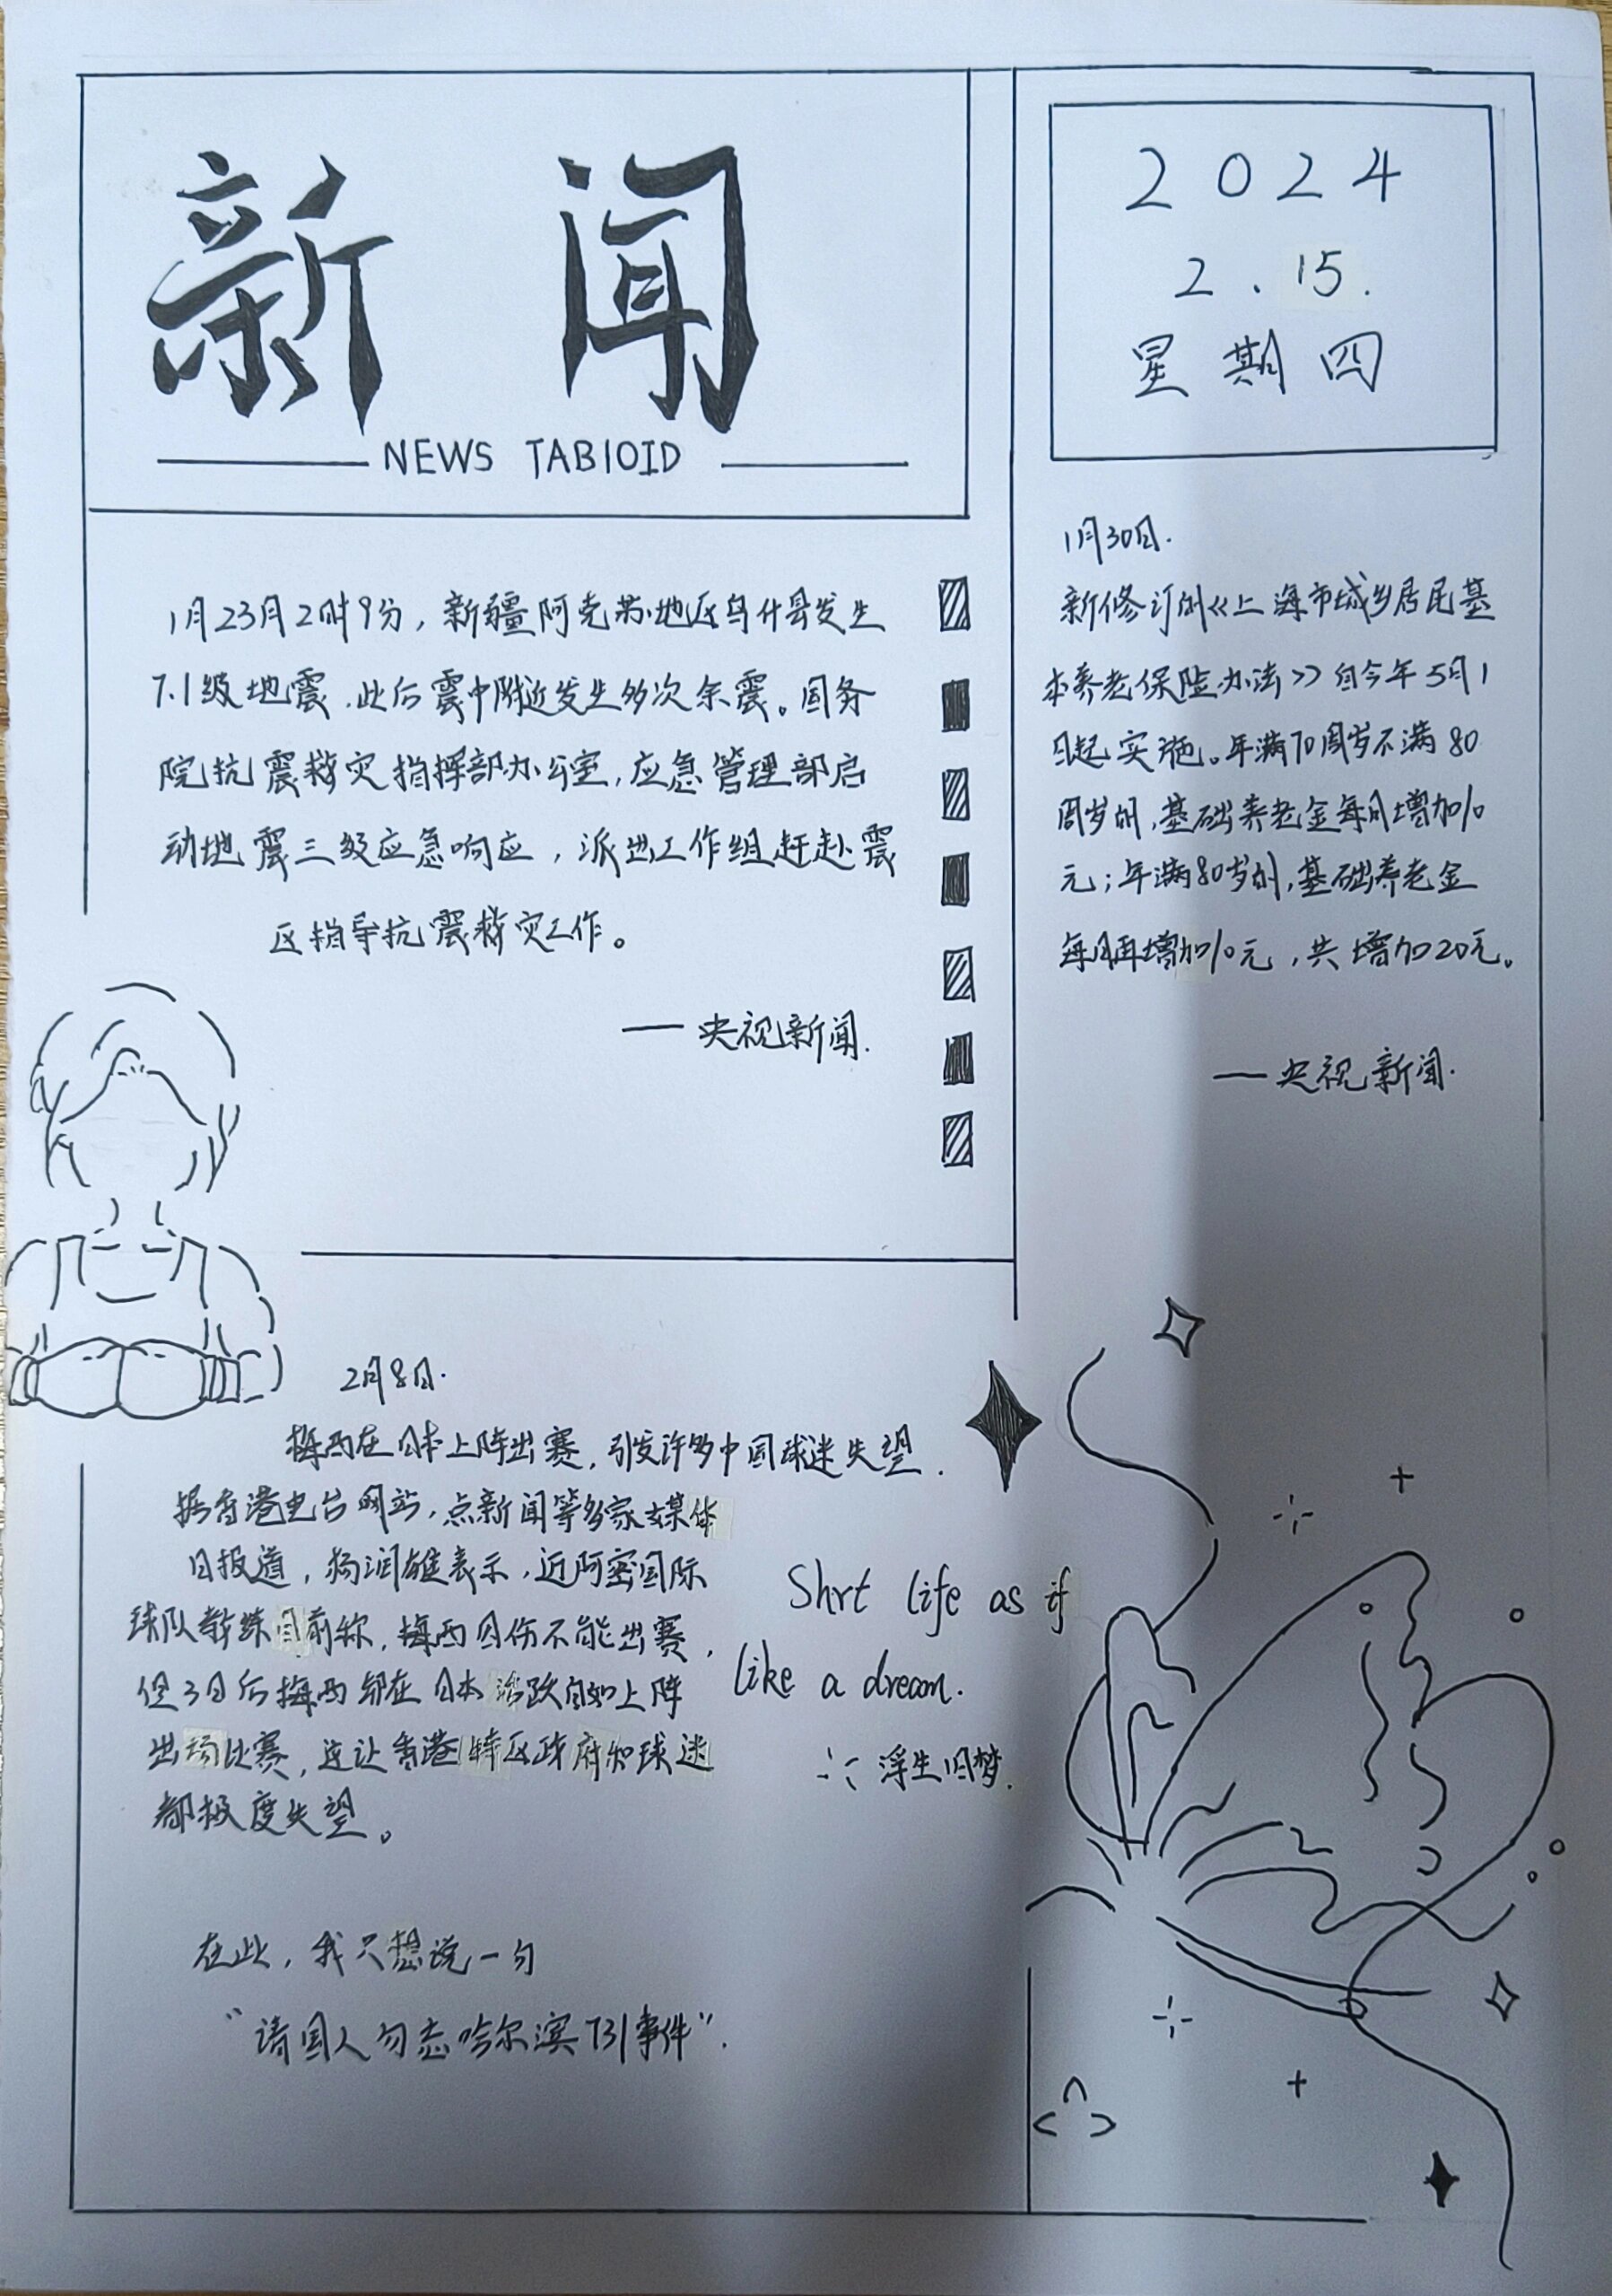 新 闻
NEWS TABIOID
2024
2.15.
星期四
1月23月2时9分，新疆阿克苏地区乌什县发生
7.1级地震.此后震中附近发生多次余震。国务
院抗震救灾指挥部办公室，应急管理部启
动地震三级应急响应，派出工作组赶赴震
区指导抗震救灾工作。
——央视新闻.
1月30日.
新修订的《上海市城乡居民基
本养老保险办法》自今年5月1
日起实施。年满70周岁不满80
周岁的，基础养老金每月增加10
元；年满80岁的，基础养老金
每月再增加10元，共增加20元。
——央视新闻.
2月8日.
梅西在日本上阵出赛，引发许多中国球迷失望.
据香港电台网站，点新闻等多家媒体
日报道，杨润雄表示，近阿密国际
球队教练目前称，梅西因伤不能出赛，
但3日后梅西却在日本活跃自如上阵
出场比赛，这让香港特区政府和球迷
都极度失望。
Shrt life as if
like a dream.
浮生旧梦.
在此，我只想说一句
“请国人勿忘哈尔滨731事件”.